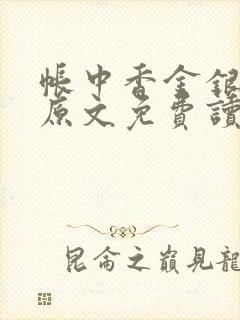 帳中香金銀
原文免費讀
昆侖之巔見龍